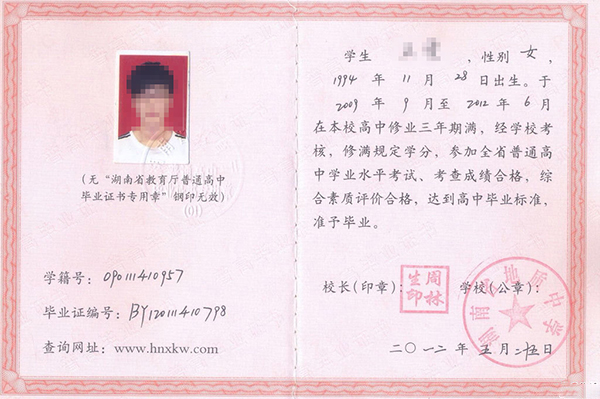 (无“湖南省教育厅普通高中
毕业证书专用章”钢印无效)
学籍号:090111410957
毕业证编号:BY12011410798
查询网址:www.hnxkw.com
学生 ,性别 女,
1994 年 11 月 28 日出生。于
2009 年 9 月至 2012 年 6 月
在本校高中修业三年期满,经学校考
核,修满规定学分,参加全省普通高
中学业水平考试、考查成绩合格,综
合素质评价合格,达到高中毕业标准,
准予毕业。
校长(印章):
周林生印
学校(公章):
湖南省地质中学
二〇一二年 五 月 二十五日